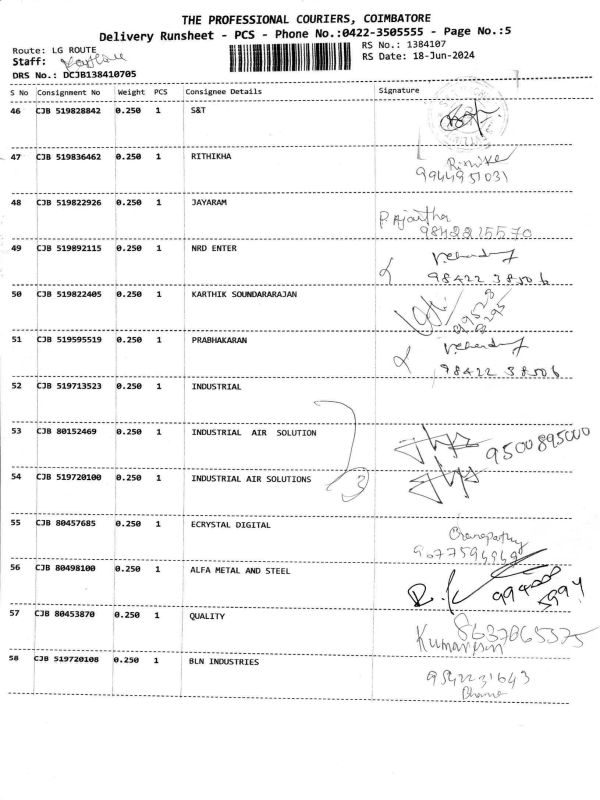 THE PROFESSIONAL COURIERS, COIMBATORE
Delivery Runsheet - PCS - Phone No.:0422-3505555 - Page No.:5
Route: LG ROUTE
RS No.: 1384107
Staff:
RS Date: 18-Jun-2024
DRS No.: DCJB138410705
S No Consignment No Weight PCS Consignee Details Signature
46 CJB 519828842 0.250 1 S&T
47 CJB 519836462 0.250 1 RITHIKHA
9944951031
48 CJB 519822926 0.250 1 JAYARAM
9842215570
49 CJB 519892115 0.250 1 NRD ENTER
98422 38506
50 CJB 519822405 0.250 1 KARTHIK SOUNDARARAJAN
51 CJB 519595519 0.250 1 PRABHAKARAN
98422 38506
52 CJB 519713523 0.250 1 INDUSTRIAL
53 CJB 80152469 0.250 1 INDUSTRIAL AIR SOLUTION 9500895000
54 CJB 519720100 0.250 1 INDUSTRIAL AIR SOLUTIONS 3
55 CJB 80457685 0.250 1 ECRYSTAL DIGITAL
56 CJB 80498100 0.250 1 ALFA METAL AND STEEL
57 CJB 80453870 0.250 1 QUALITY 8637865375
58 CJB 519720108 0.250 1 BLN INDUSTRIES
9842231643